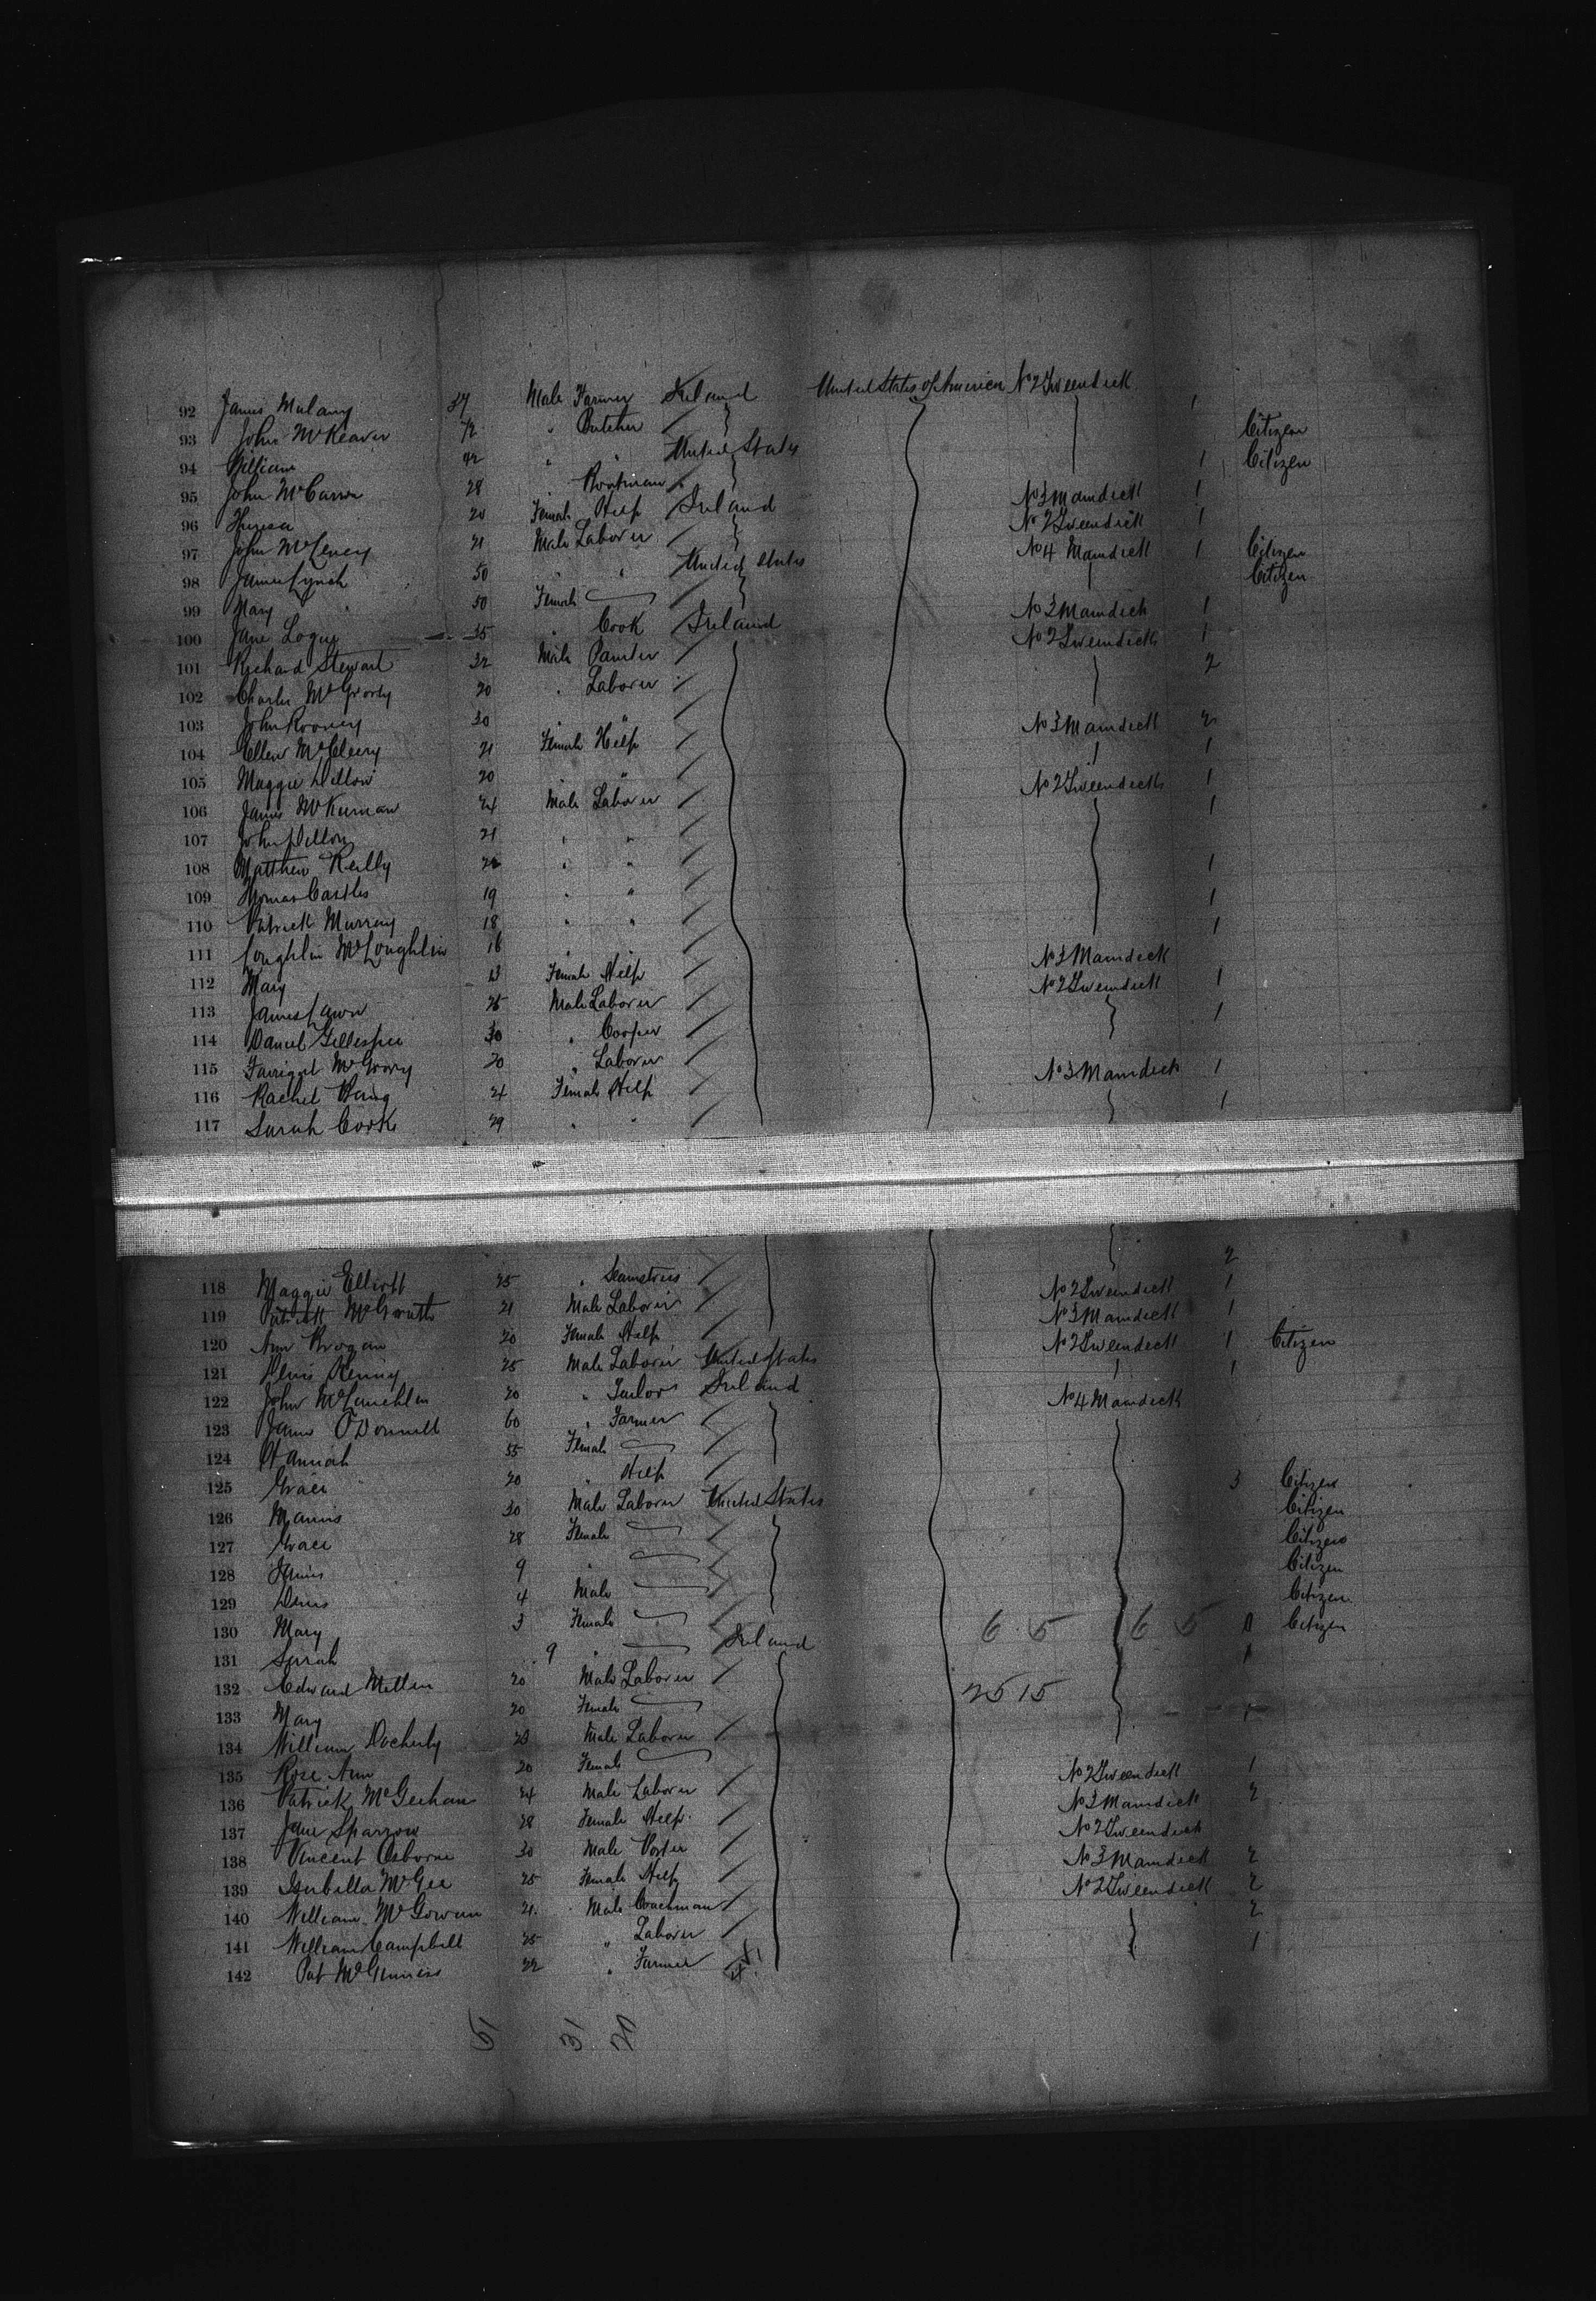 92 James Mulany 37 Male Farmer Ireland United States of America No 2 Tweendeck 1
93 John McKeaver 72 " Butcher Citizen
94 William 42 " " United States 1 Citizen
95 John McCarron 28 " Boatman No 3 Maindeck 1
96 Theresa 20 Female Help Ireland No 2 Tweendeck 1
97 John McLeney 21 Male Laborer No 4 Maindeck 1 Citizen
98 James Lynch 50 " " United States Citizen
99 Mary 50 Female No 3 Maindeck 1
100 Jane Logue 35 " Cook Ireland No 2 Tweendeck 1
101 Richard Stewart 32 Male Painter 2
102 Charles McGrory 20 " Laborer
103 John Rooney 30 " " No 3 Maindeck 2
104 Ellen McCleery 21 Female Help 1
105 Maggie Dillon 20 " " No 2 Tweendeck 1
106 James McKurnan 24 Male Laborer 1
107 John Dillon 21 " "
108 Matthew Reilly " " 1
109 Thomas Castles 19 " " 1
110 Patrick Murray 18 " " 1
111 Loughlin McLoughlin 16 " " No 3 Maindeck
112 Mary 13 Female Help No 2 Tweendeck 1
113 James Lawn 25 Male Laborer 1
114 Daniel Gillespie 30 " Cooper
115 McGrory 20 " Laborer No 3 Maindeck 1
116 Rachel 24 Female Help 1
117 Sarah Cook 29 " "
2
118 Maggie Elliott 25 " Seamstress No 2 Tweendeck 1
119 Patrick McGrath 21 Male Laborer No 3 Maindeck 1
120 Ann Brogan 20 Female Help No 2 Tweendeck 1 Citizen
121 Denis Kenny 25 Male Laborer United States 1
122 John McLauchlin 20 " Tailor Ireland No 4 Maindeck
123 James O'Donnell 60 " Farmer
124 Hannah 55 Female
125 Grace 20 " Help 3 Citizen
126 Manus 30 Male Laborer United States Citizen
127 Grace 28 Female Citizen
128 9 " Citizen
129 Denis 4 Male Citizen
130 Mary 3 Female 6 5 6 5 Citizen
131 Sarah 9 " Ireland
132 Edward 20 Male Laborer 25 15
133 Mary 20 Female
134 William Docherty 23 Male Laborer
135 Rose Ann 20 Female No 2 Tweendeck 1
136 Patrick McGeehan 24 Male Laborer No 3 Maindeck 2
137 Jane Sparrow 28 Female Help No 2 Tweendeck
138 Vincent Osborne 30 Male Porter No 3 Maindeck 2
139 Isabella McGee 25 Female Help No 2 Tweendeck 2
140 William McGowan 21 Male Coachman 2
141 William Campbell 25 " Laborer 1
142 Pat McGinniss 22 " Farmer